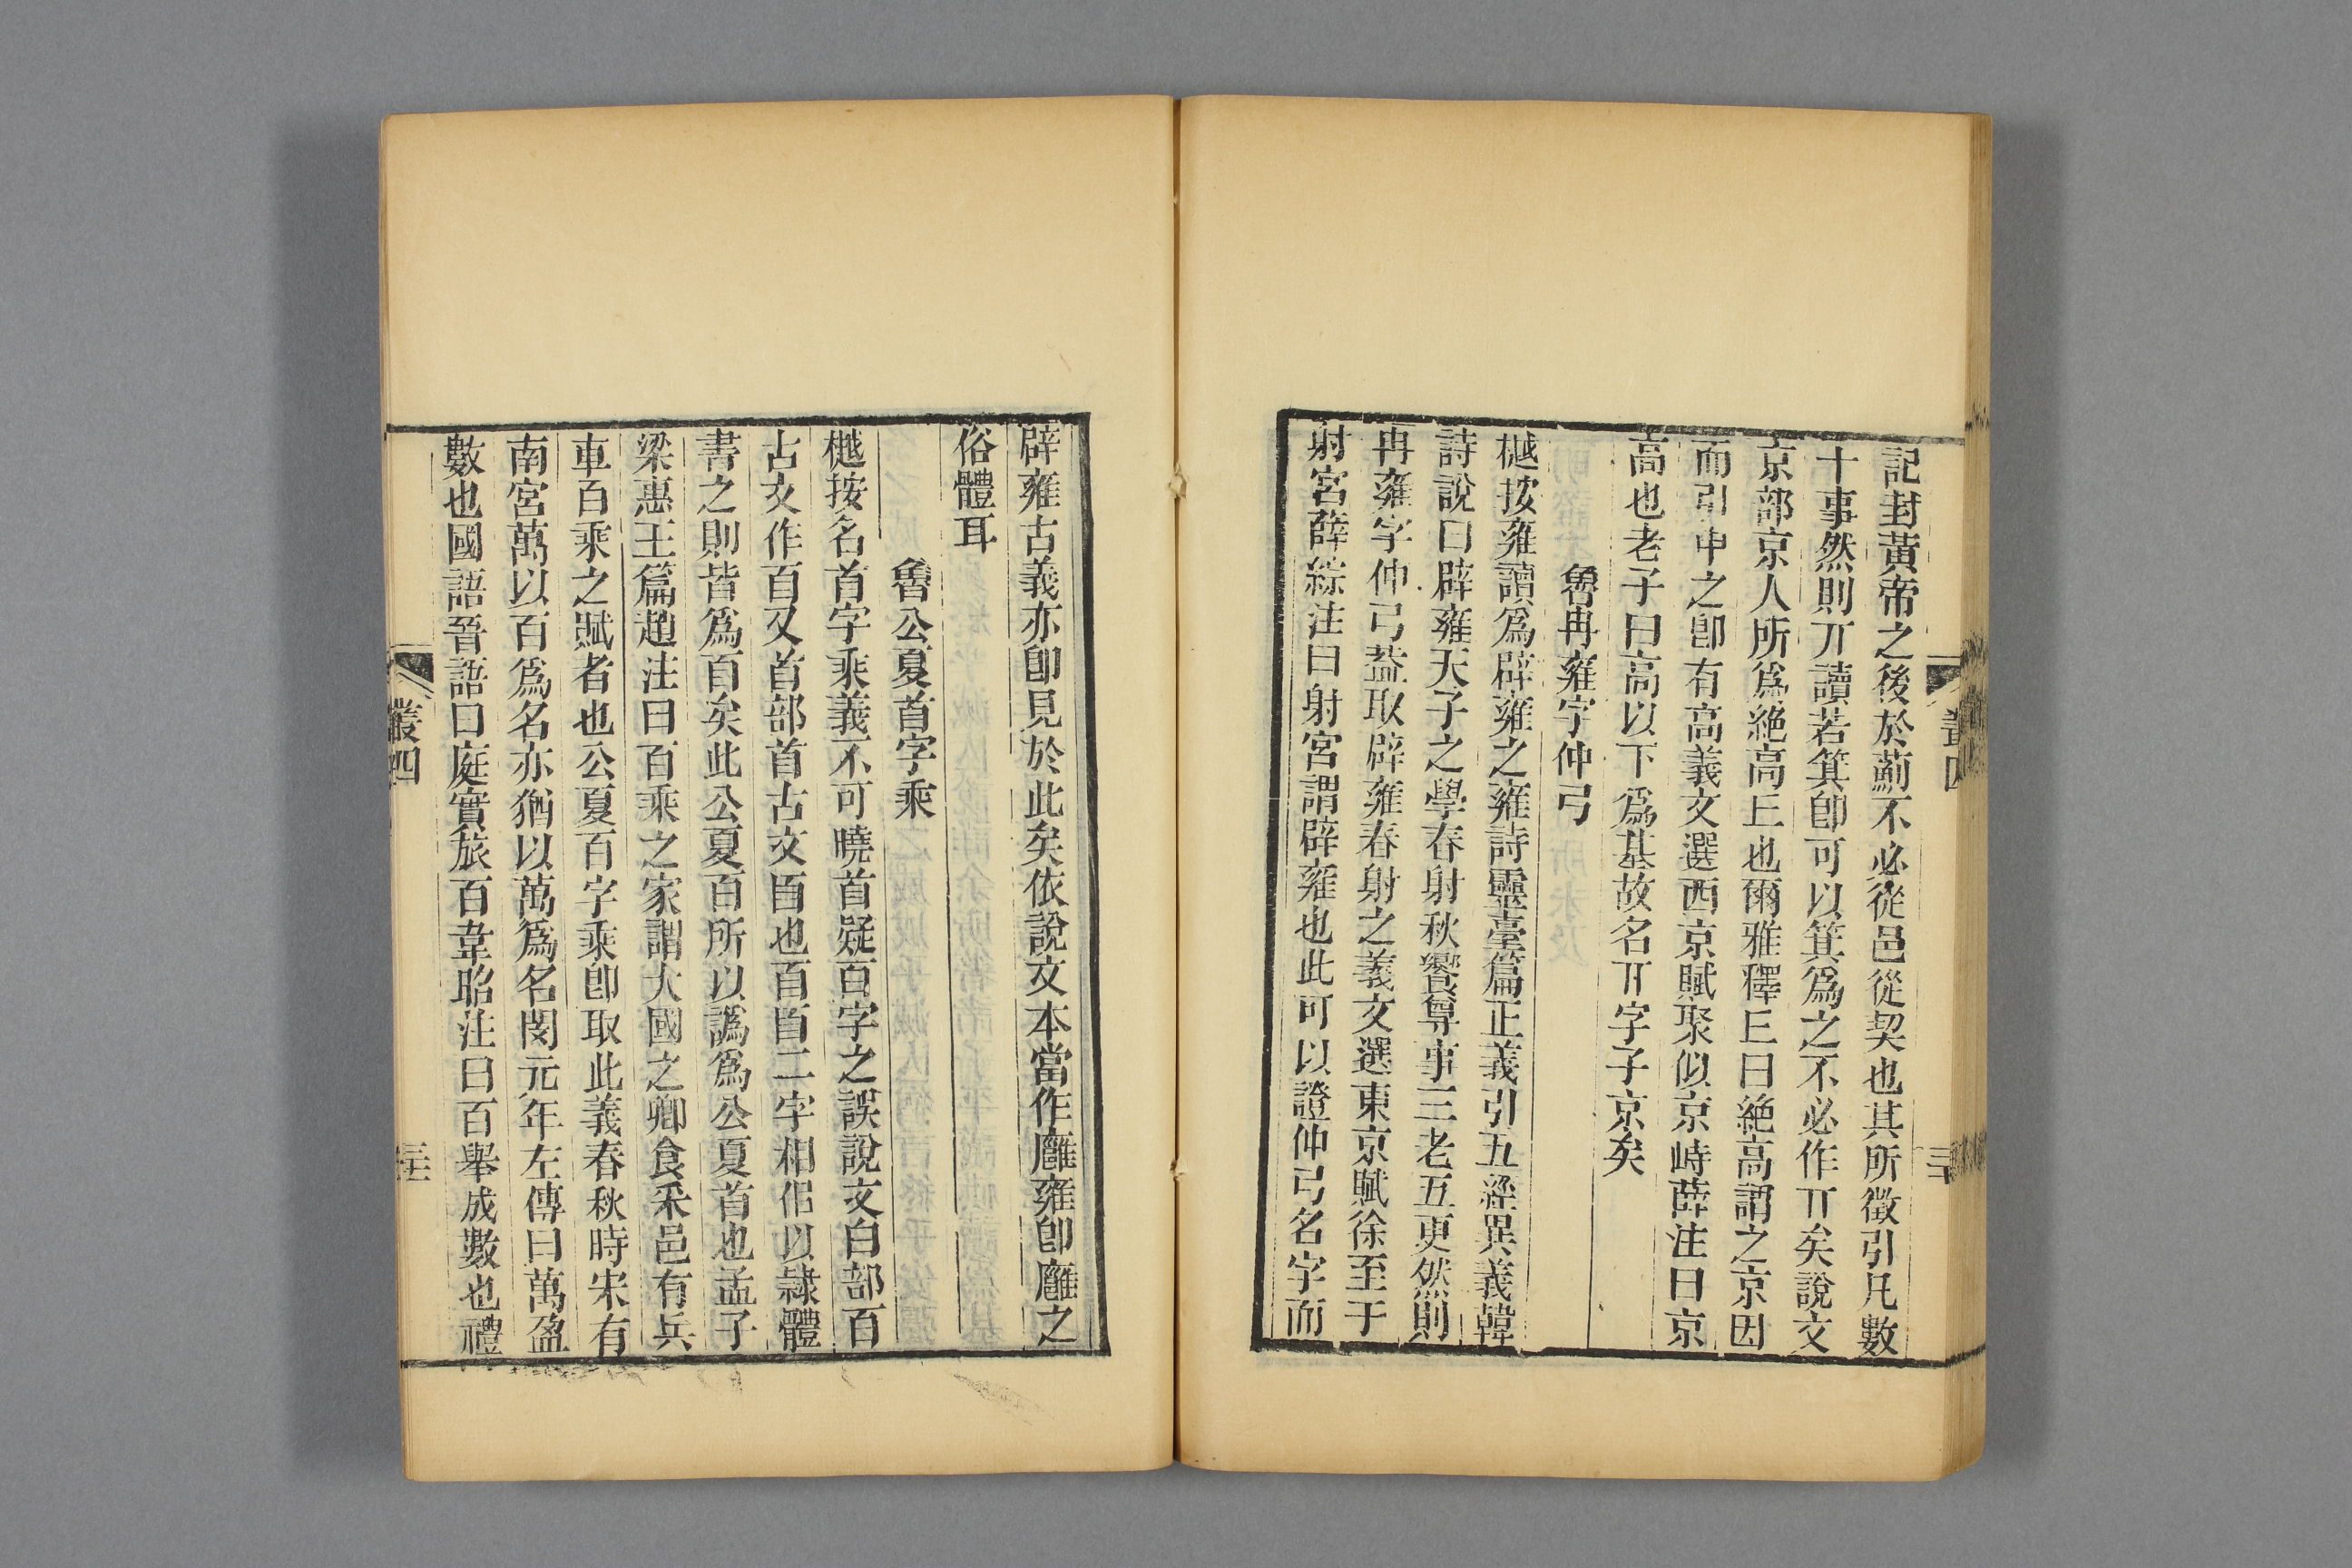 記封黃帝之後於薊不必從邑從契也其所徵引凡數
十事然則丌讀若箕卽可以箕爲之不必作丌矣說文
京部京人所爲絶高𠀉也爾雅釋𠀉曰絶高謂之京因
而引申之卽有高義文選西京賦聚似京峙薛注曰京
高也老子曰高以下爲基故名丌字子京矣
魯冉雍字仲弓
樾按雍讀爲辟雍之雍詩靈臺篇正義引五經異義韓
詩說曰辟雍天子之學春射秋饗尊事三老五更然則
冉雍字仲弓葢取辟雍春射之義文選東京賦徐至于
射宮薛綜注曰射宮謂辟雍也此可以證仲弓名字而
叢四
三十
辟雍古義亦卽見於此矣依說文本當作廱雍卽廱之
俗體耳
魯公夏首字乘
樾按名首字乘義不可曉首疑百字之誤說文白部百
古文作𦣻又首部首古文𦣻也𦣻𦣻二字相佀以隸體
書之則皆爲百矣此公夏百所以譌爲公夏首也孟子
梁惠王篇趙注曰百乘之家謂大國之卿食采邑有兵
車百乘之賦者也公夏百字乘卽取此義春秋時宋有
南宮萬以百爲名亦猶以萬爲名閔元年左傳曰萬盈
數也國語晉語曰庭實旅百韋昭注曰百舉成數也禮
叢四
三十